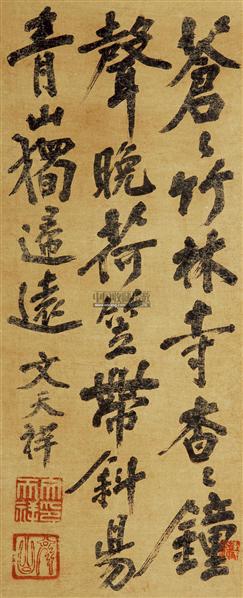 蒼〻竹林寺杳〻鐘
聲晚荷笠帶斜昜
青山獨歸遠
文天祥